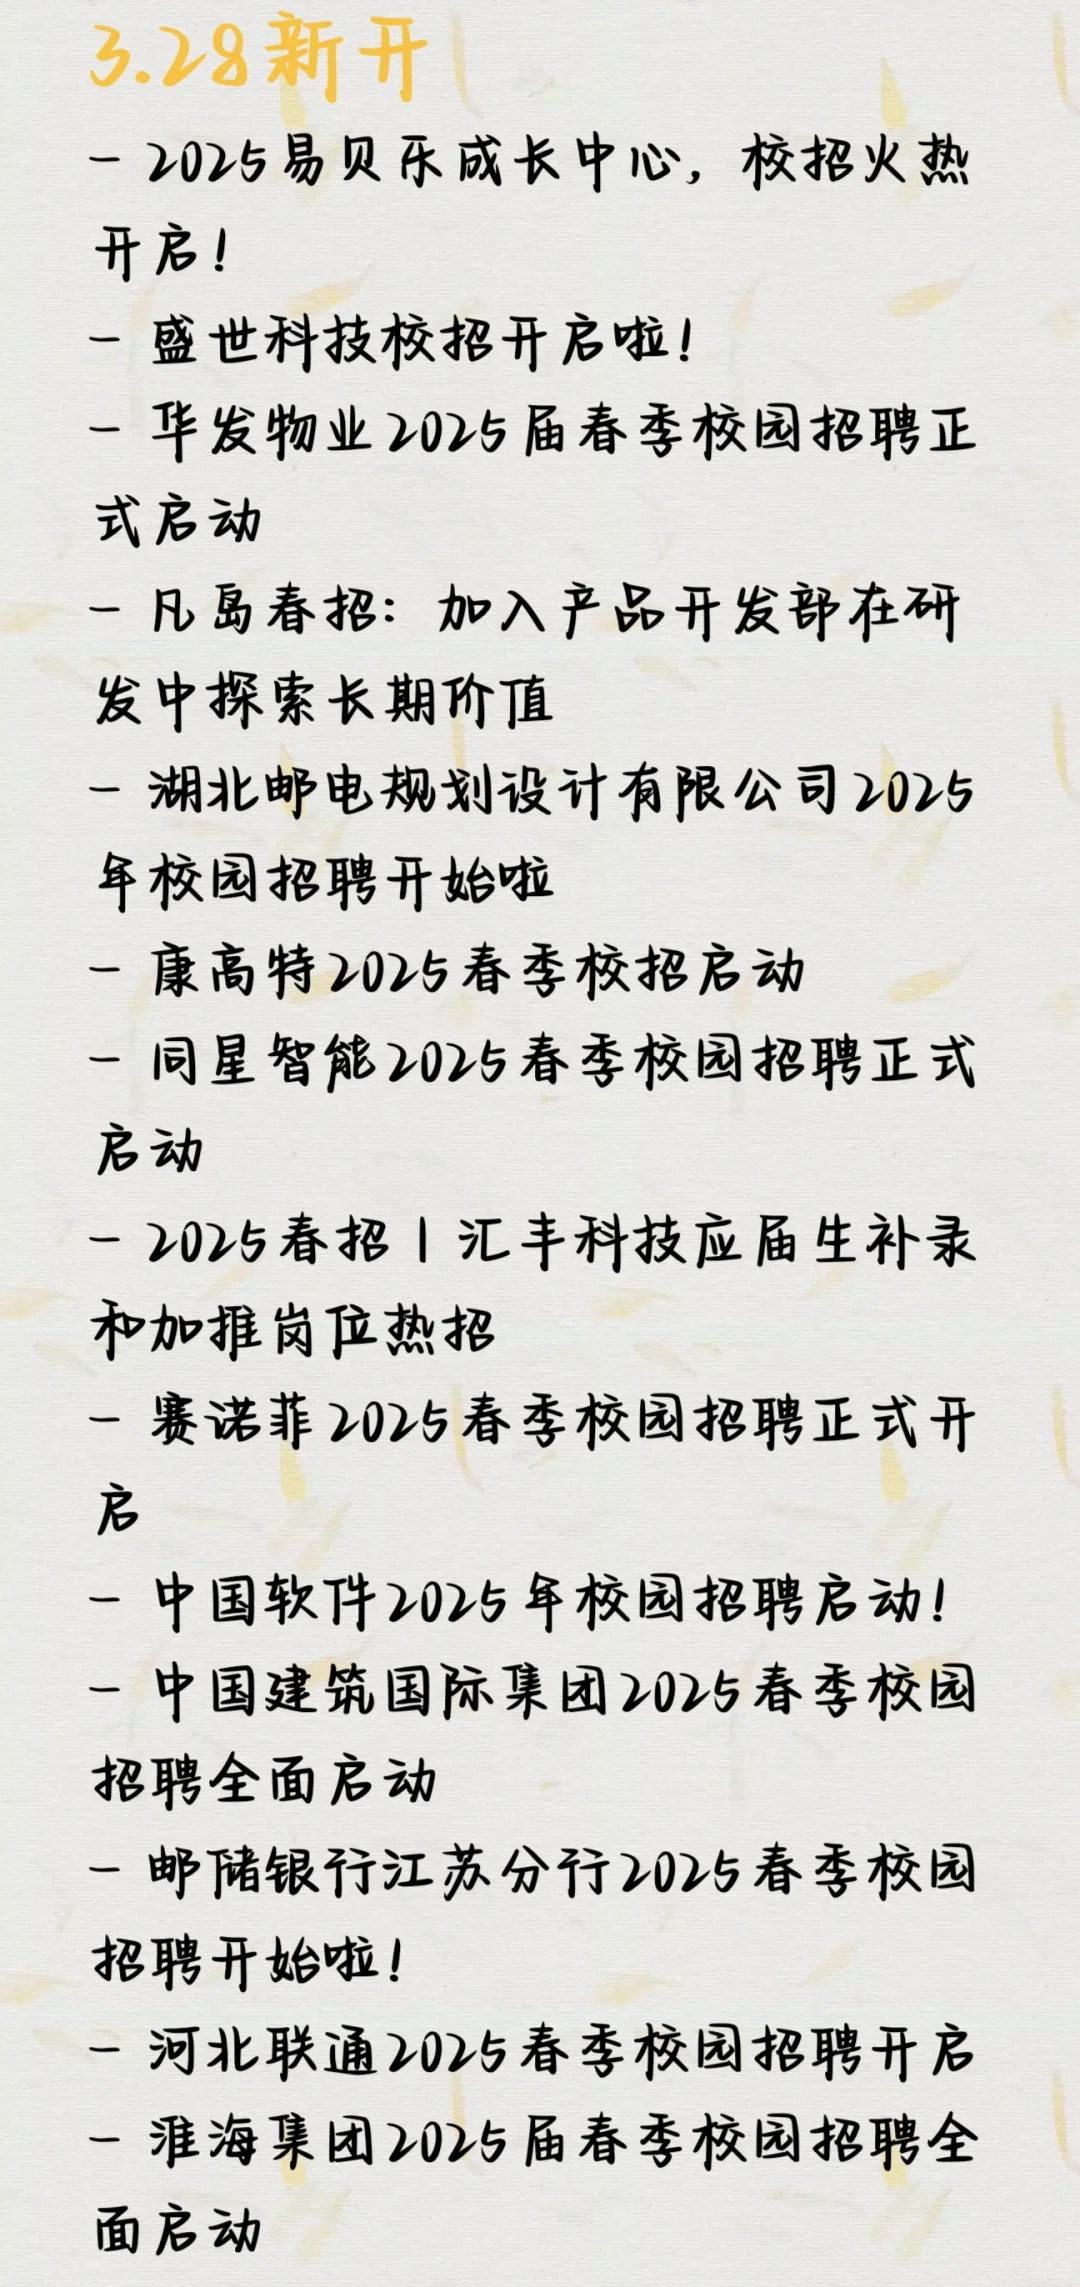 3.28新开
- 2025易贝乐成长中心，校招火热
开启！
- 盛世科技校招开启啦！
- 华发物业2025届春季校园招聘正
式启动
- 凡岛春招：加入产品开发部在研
发中探索长期价值
- 湖北邮电规划设计有限公司2025
年校园招聘开始啦
- 康高特2025春季校招启动
- 同星智能2025春季校园招聘正式
启动
- 2025春招丨汇丰科技应届生补录
和加推岗位热招
- 赛诺菲2025春季校园招聘正式开
启
- 中国软件2025年校园招聘启动！
- 中国建筑国际集团2025春季校园
招聘全面启动
- 邮储银行江苏分行2025春季校园
招聘开始啦！
- 河北联通2025春季校园招聘开启
- 淮海集团2025届春季校园招聘全
面启动